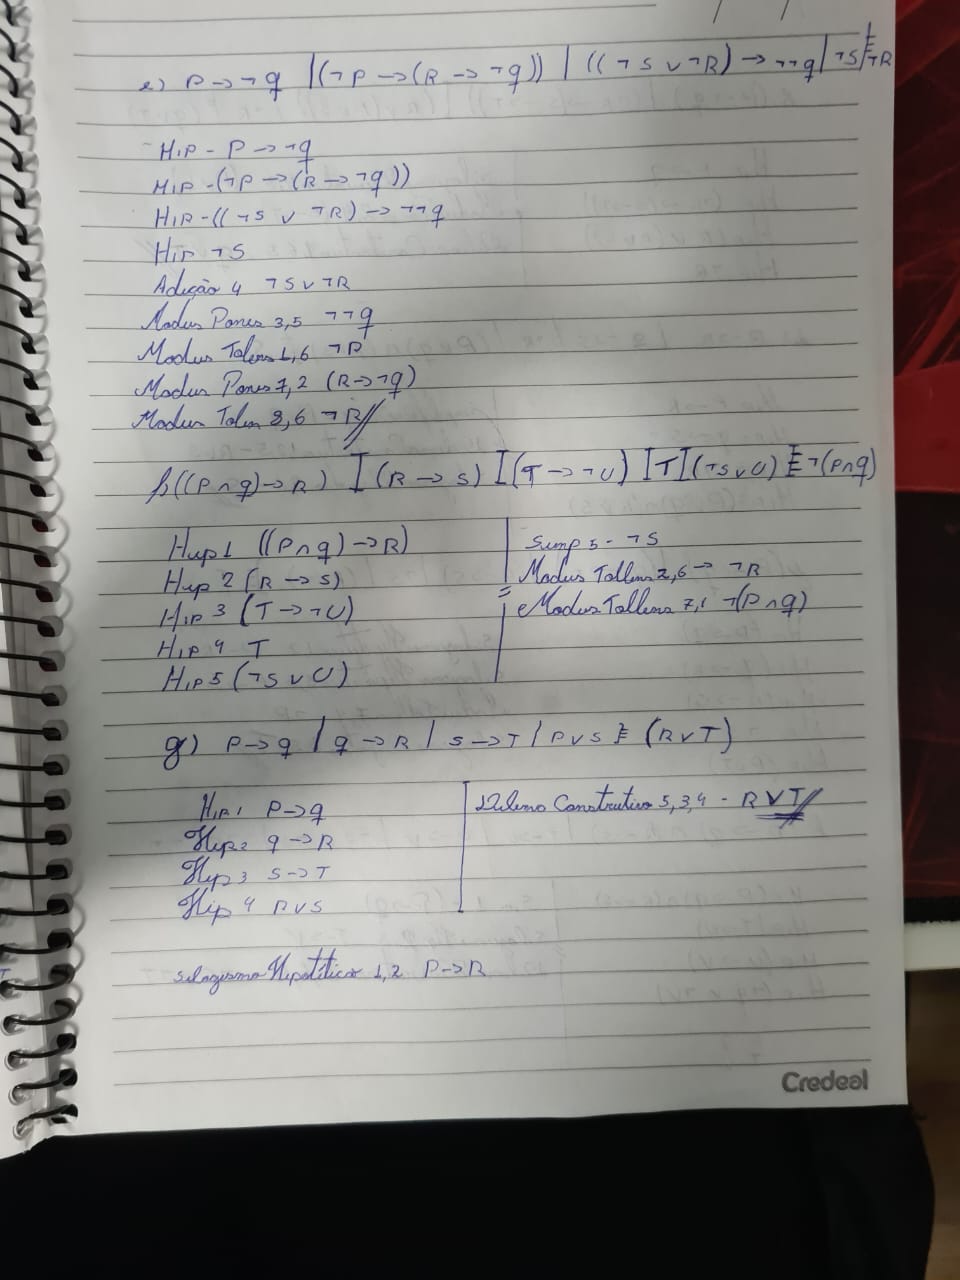 e) P → ¬q | (¬P → (R → ¬q)) | ((¬S ∨ ¬R) → ¬¬q | ¬S ⊨ ¬R
HIP - P → ¬q
HIP - (¬P → (R → ¬q))
HIR - ((¬S ∨ ¬R) → ¬¬q
HIP ¬S
Adição 4 ¬S ∨ ¬R
Modus Pones 3,5 ¬¬q
Modus Tolens 1,6 ¬P
Modus Pones 7,2 (R → ¬q)
Modus Tolen 8,6 ¬R //
f ((P ∧ q) → R) I (R → S) I (T → ¬U) I T I (¬S ∨ U) ⊨ ¬(P ∧ q)
Hip 1 ((P ∧ q) → R)
Hip 2 (R → S)
Hip 3 (T → ¬U)
Hip 4 T
Hip 5 (¬S ∨ U)
Simp 5 - ¬S
Modus Tollens 2,6 → ¬R
Modus Tollens 7,1 ¬(P ∧ q)
g) P → q / q → R / S → T / P ∨ S ⊨ (R ∨ T)
Hip 1 P → q
Hip 2 q → R
Hip 3 S → T
Hip 4 P ∨ S
Silogismo Hipotético 1,2 P → R
Dilema Construtivo 5,3,4 - R ∨ T //
Credeal